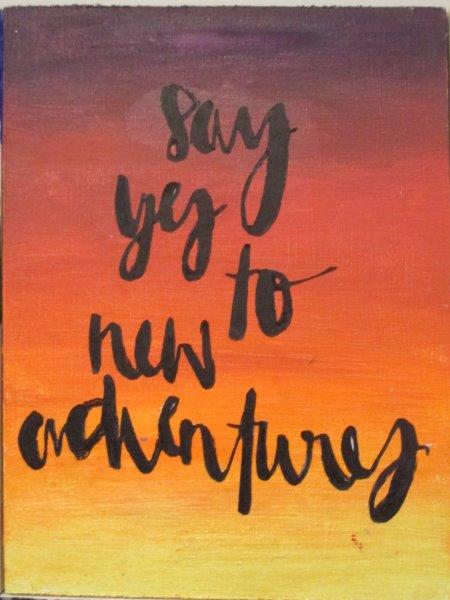 say
yes
to
new
adventures